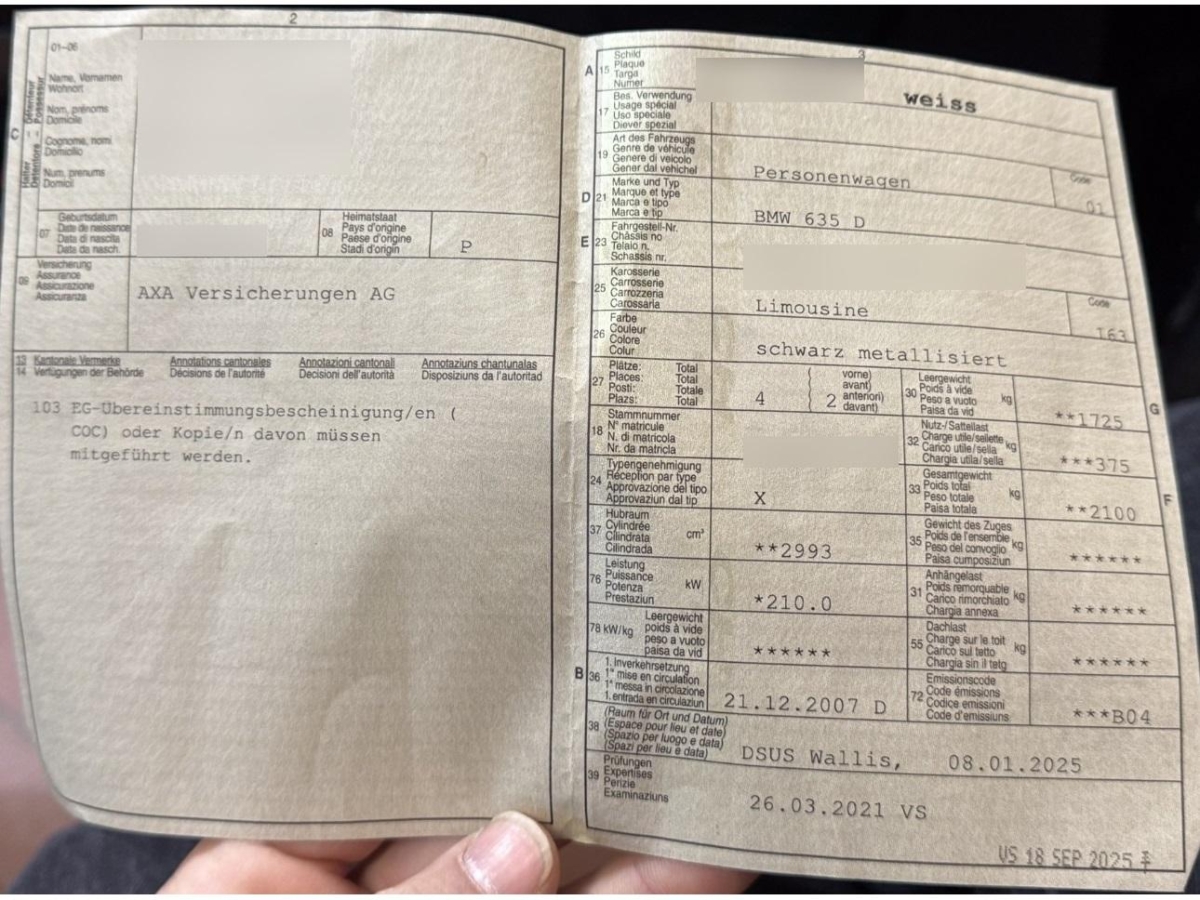 2
01-06
Détenteur
Possessur
Halter
Detentore
C
11
Name, Vornamen
Wohnort
Nom, prénoms
Domicile
Cognome, nomi
Domicilio
Num, prenums
Domicil
07
Geburtsdatum
Date de naissance
Data di nascita
Data da nasch.
08
Heimatstaat
Pays d'origine
Paese d'origine
Stadi d'origin
P
09
Versicherung
Assurance
Assicurazione
Assicuranza
AXA Versicherungen AG
13 Kantonale Vermerke Annotations cantonales Annotazioni cantonali Annotaziuns chantunalas
14 Verfügungen der Behörde Décisions de l'autorité Decisioni dell'autorità Disposiziuns da l'autoritad
103 EG-Übereinstimmungsbescheinigung/en (
COC) oder Kopie/n davon müssen
mitgeführt werden.
3
A 15
Schild
Plaque
Targa
Numer
weiss
17
Bes. Verwendung
Usage spécial
Uso speciale
Diever spezial
19
Art des Fahrzeugs
Genre de véhicule
Genere di veicolo
Gener dal vehichel
Personenwagen
Code
01
D 21
Marke und Typ
Marque et type
Marca e tipo
Marca e tip
BMW 635 D
E 23
Fahrgestell-Nr.
Châssis no
Telaio n.
Schassis nr.
25
Karosserie
Carrosserie
Carrozzeria
Carossaria
Limousine
Code
163
26
Farbe
Couleur
Colore
Colur
schwarz metallisiert
27
Plätze: Total
Places: Total
Posti: Totale
Plazs: Total
4
2
vorne)
avant)
anteriori)
davant)
30
Leergewicht
Poids à vide
Peso a vuoto
Paisa da vid
kg
**1725
G
18
Stammnummer
N° matricule
N. di matricola
Nr. da matricla
32
Nutz-/Sattellast
Charge utile/sellette
Carico utile/sella
Chargia utila/sella
kg
***375
24
Typengenehmigung
Réception par type
Approvazione del tipo
Approvaziun dal tip
X
33
Gesamtgewicht
Poids total
Peso totale
Paisa totale
kg
**2100
F
37
Hubraum
Cylindrée
Cilindrata
Cilindrada
cm³
**2993
35
Gewicht des Zuges
Poids de l'ensemble
Peso del convoglio
Paisa cumposiziun
kg
******
76
Leistung
Puissance
Potenza
Prestaziun
kW
*210.0
31
Anhängelast
Poids remorquable
Carico rimorchiato
Chargia annexa
kg
******
78 kW/kg
Leergewicht
poids à vide
peso a vuoto
paisa da vid
******
55
Dachlast
Charge sur le toit
Carico sul tetto
Chargia sin il tetg
kg
******
B 36
1. Inverkehrsetzung
1re mise en circulation
1a messa in circolazione
1. entrada en circulaziun
21.12.2007 D
72
Emissionscode
Code émissions
Codice emissioni
Code d'emissiuns
***B04
38
(Raum für Ort und Datum)
(Espace pour lieu et date)
(Spazio per luogo e data)
(Spazi per lieu e data)
DSUS Wallis, 08.01.2025
39
Prüfungen
Expertises
Perizie
Examinaziuns
26.03.2021 VS
VS 18 SEP 2025